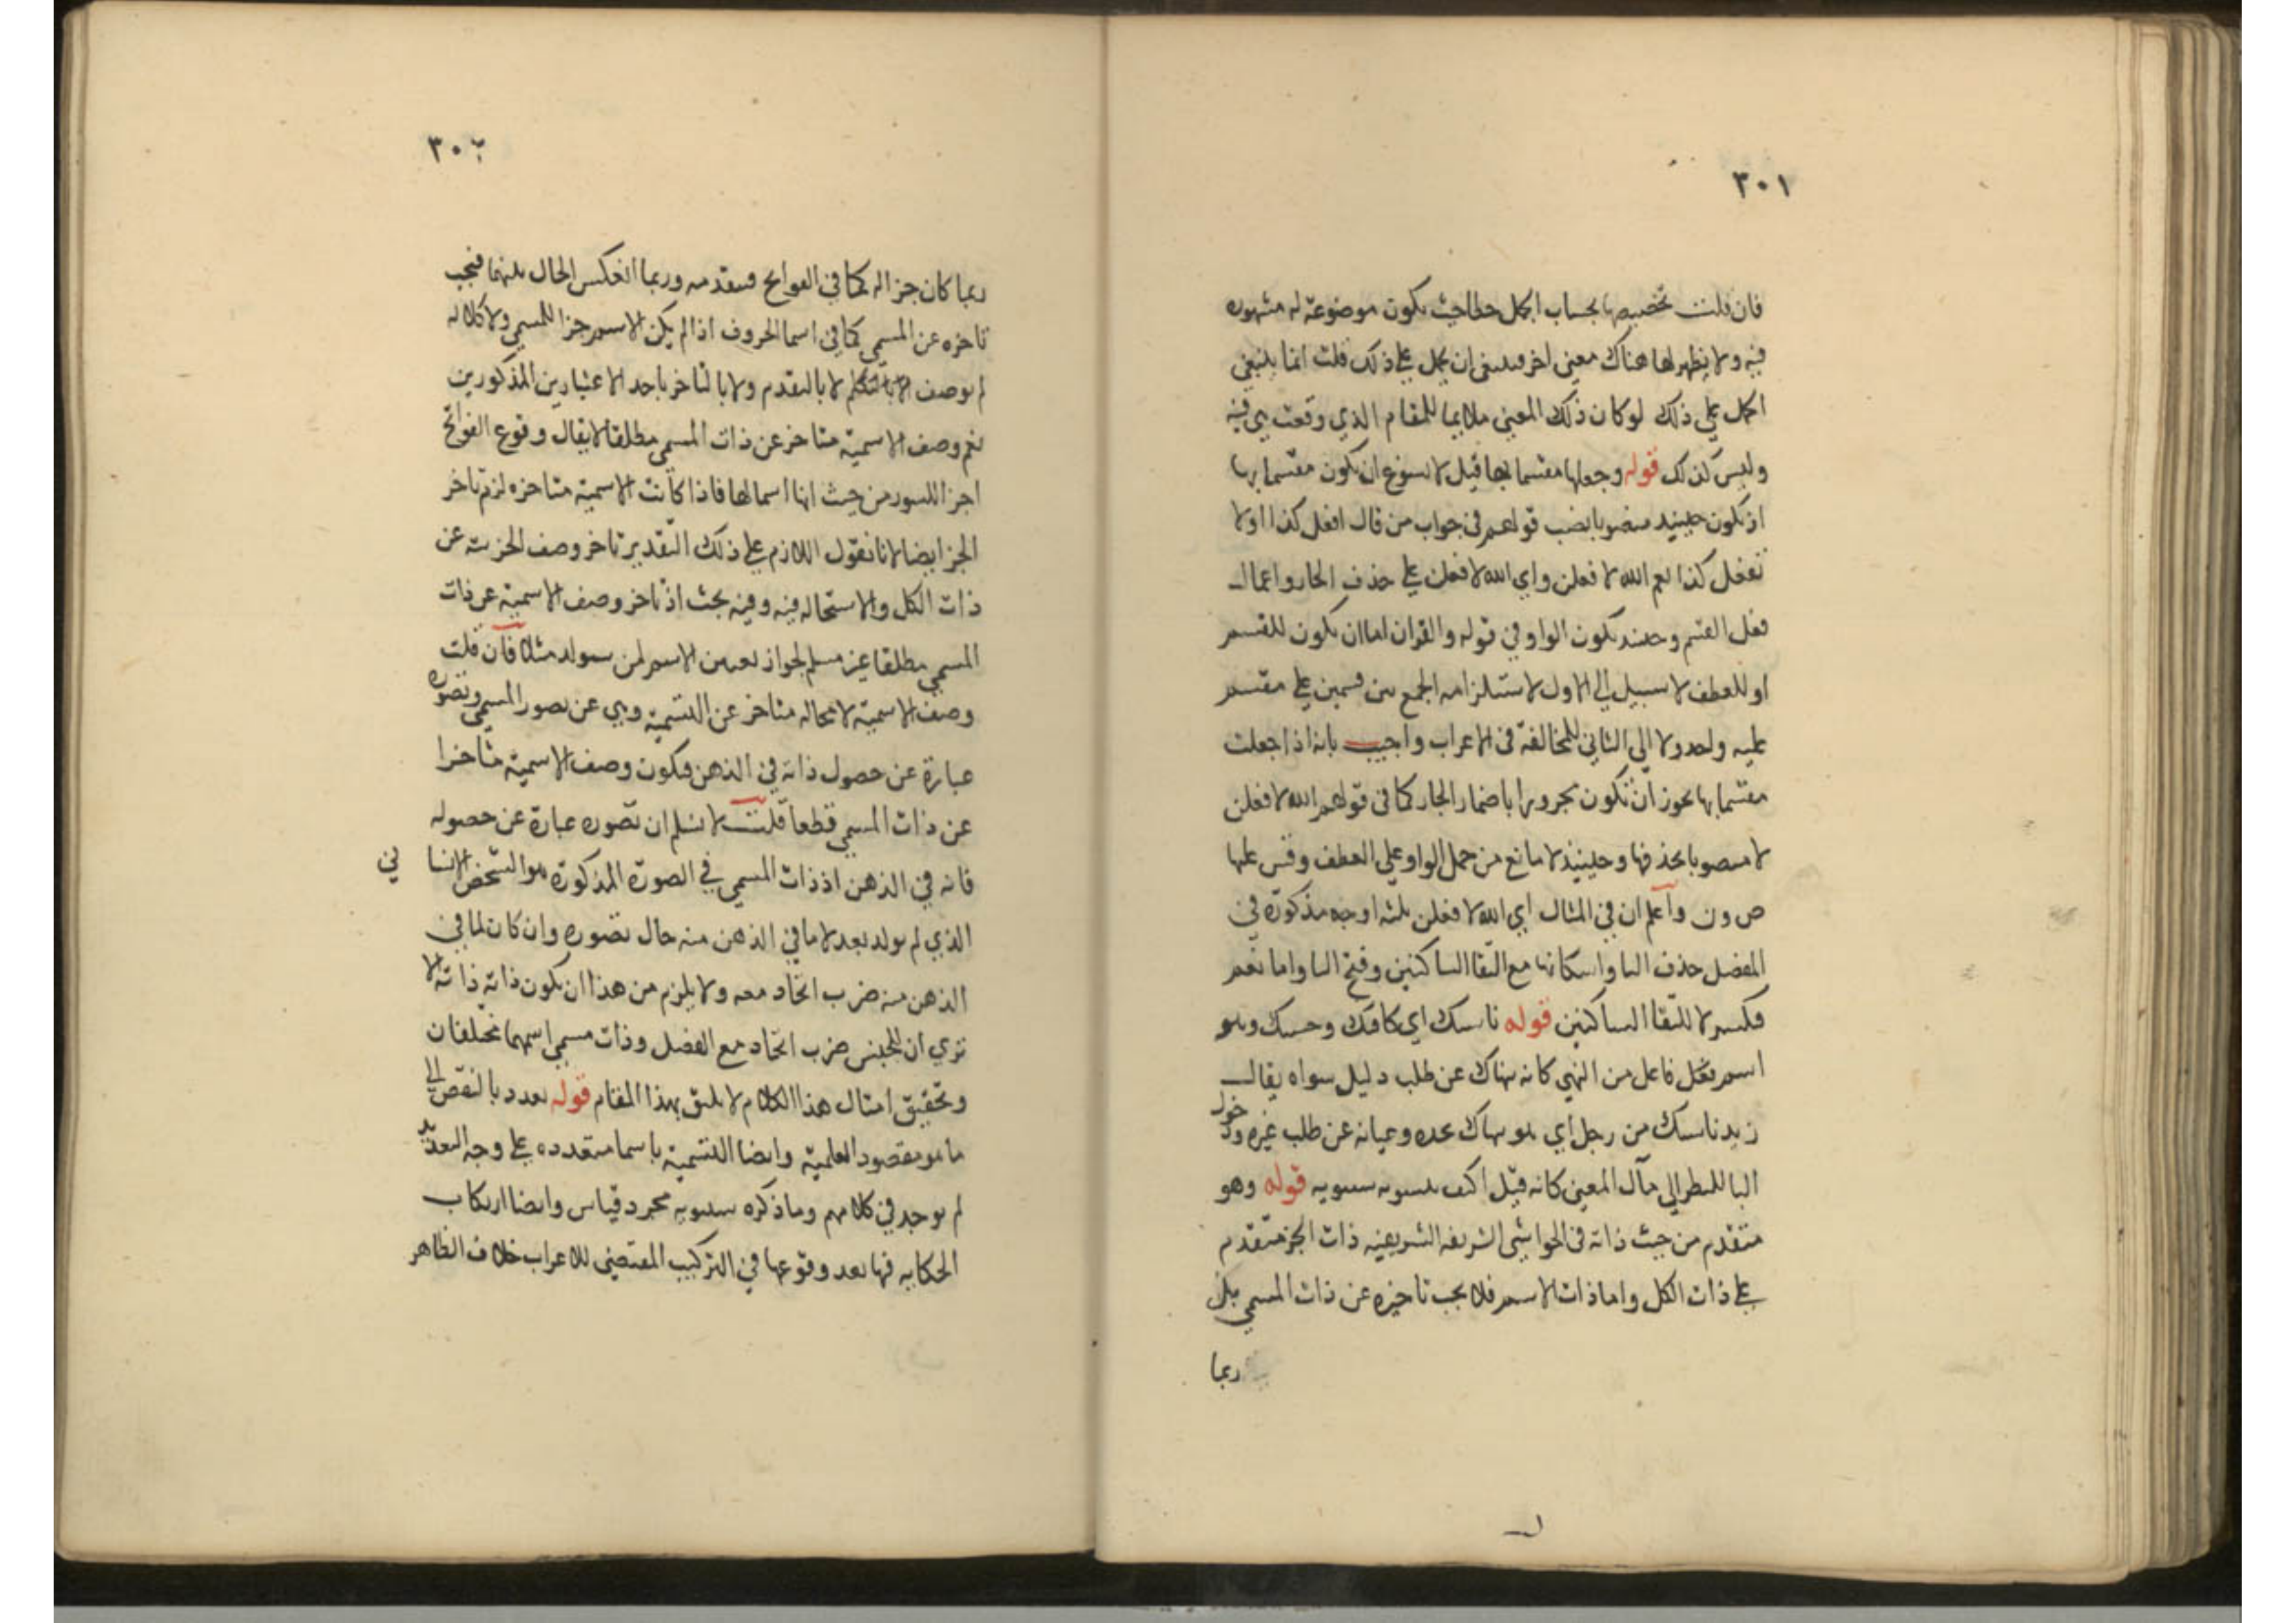 ٣٠١
فان قلت تخصيصها بحساب الجمل حطا بحيث يكون موضوعة له مشهوره
فيه ولا يظهر لها هناك معنى اخر فينبغى ان يحمل على ذلك قلت انما ينبغي
الحمل على ذلك لو كان ذلك المعنى ملايما للمقام الذي وقعت هي فيه
وليس كذلك قوله وجعلها مقسما بها قيل لا يسوغ ان يكون مقسما بها
اذ يكون حينيد منصوبا بضب قولهم في جواب من قال افعل كذا او لا
تفعل كذا نعم الله لافعلن واي الله لافعلن على حذف الجار واعمال
فعل القسم وحينيد يكون الواو في قوله والقران اما ان يكون للقسم
او للعطف لا سبيل الى الاول لاستلزامه الجمع بين قسمين على مقسم
عليه واحد ولا الى الثاني للمخالفة في الاعراب واجيب بانه اذا جعلت
مقسما بها يجوز ان تكون مجرورا باضمار الجار كما في قولهم الله لافعلن
لا منصوبا بحذفها وحينيذ لا مانع من حمل الواو على العطف وقس عليها
ص ون واعلم ان في المثال اي الله لافعلن ثلثه اوجه مذكورة في
المفصل حذف اليا واسكانها مع التقا الساكنين وفتح اليا واما نعم
فكسر لا للتقا الساكنين قوله ناهيك اي كافيك وحسبك وهو
اسم فعل فاعل من النهي كانه ينهاك عن طلب دليل سواه يقال
زيد ناهيك من رجل اي هو ينهاك بجده وغيانه عن طلب غيره ودخول
البا للنظر الى مآل المعنى كانه قيل اكتف بتسوية سيبويه قوله وهو
متقدم من حيث ذاته في الحواشي الشريفه الشريفيه ذات الجز متقدم
على ذات الكل واما ذات الاسم فلا يجب تاخيره عن ذات المسمى بل
ربما
٣٠٢
ربما كان جزا له كما في الفواتح فيتقدمه وربما انعكس الحال بينهما فيجب
تاخره عن المسمى كما في اسما الحروف اذا لم يكن الاسم جزا للمسمى ولا كلا له
لم يوصف لا بالتقدم ولا بالتاخر باحد الاعتبارين المذكورين
نعم وصف الاسمية متاخر عن ذات المسمى مطلقا لا يقال وقوع الفواتح
اجزا للسور من حيث انها اسما لها فاذا كانت الاسمية متاخره لزم تاخر
الجز ايضا لانا نقول اللازم على ذلك التقدير تاخر وصف الجزئية عن
ذات الكل ولا استحاله فيه وفيه بحث اذ تاخر وصف الاسمية عن ذات
المسمى مطلقا غير مسلم لجواز تعيين الاسم لمن سيولد مثلا فان قلت
وصف الاسمية لا محاله متاخر عن التسمية وهي عن تصور المسمى وتصوره
عبارة عن حصول ذاته في الذهن فيكون وصف الاسمية متاخرا
عن ذات المسمى قطعا قلت لا نسلم ان تصوره عبارة عن حصوله
فانه في الذهن اذ ذات المسمى في الصورة المذكورة هو الشخص الانسا ني
الذي لم يولد بعد لا ما في الذهن منه حال تصوره وان كان لما في
الذهن منه ضرب اتحاد معه ولا يلزم من هذا ان يكون ذاته ذاته الا
ترى ان للجنس ضرب اتحاد مع الفصل وذات مسمى اسمهما مختلفان
وتحقيق امثال هذا الكلام لا يليق بهذا المقام قوله يعدد بالنقض الى
ما هو مقصود العلمية وايضا التسمية باسما متعدده على وجه التعديد
لم يوجد في كلامهم وما ذكره سيبويه مجرد قياس وايضا ارتكاب
الحكايه فيها بعد وقوعها في التركيب المقتضى للاعراب خلاف الظاهر